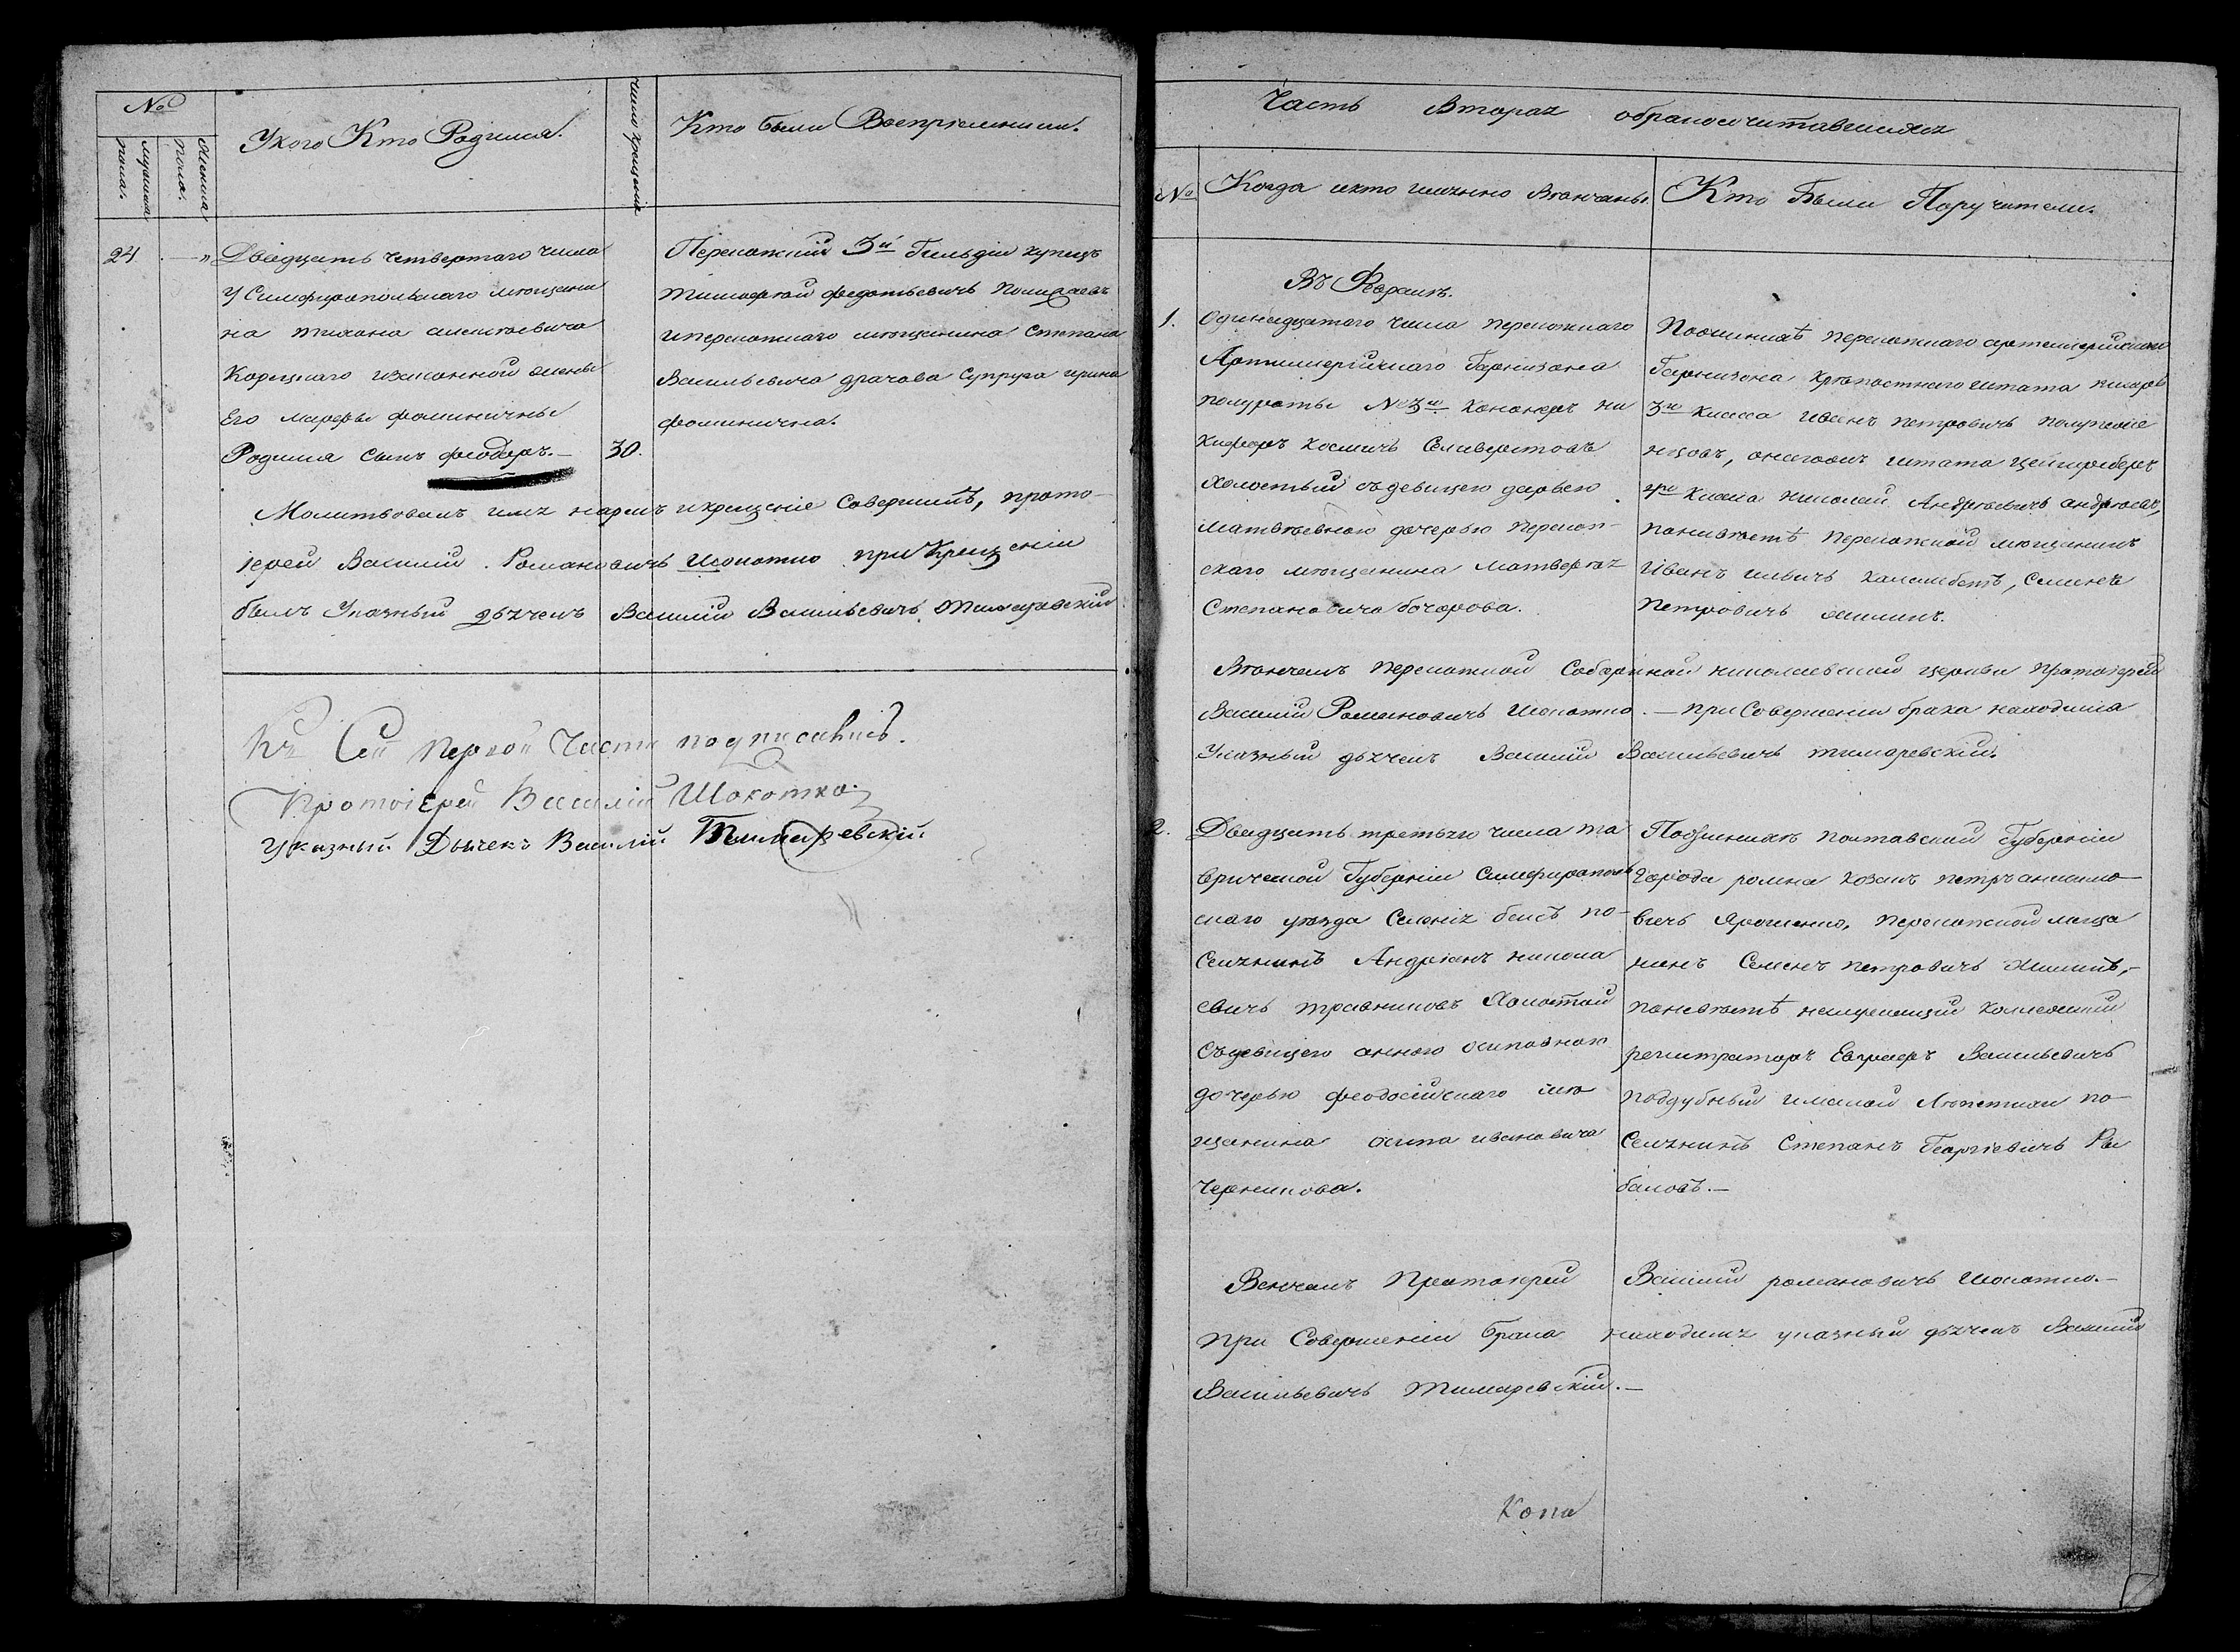 №
мужеска пола.
женска пола.
У кого Кто Родился.
Число крещения
Кто были Восприемники.
24 — „ Двадцать четвертаго числа
У Симферопольскаго мещани
на тихона алексеевича
Корецкаго изаконной жены
Его марфы фоминичны
Родился сынъ феодоръ.— 30.
Перекопскій 3й Гильдіи купецъ
тимофей федотьевичъ
иперекопскаго мещанина Степана
Васильевича драчова Супруга ирина
фоминична.
Молитвовалъ имя нарекъ икрещеніе Совершилъ, прото-
іерей Василій Романовичъ Шокотко при Крещеніи
былъ Указный дьячекъ Василій Васильевичъ Тимаревскій
Къ Сей первой Части подписались.
Протоіерей Василій Шокотко.
Указный Дьячекъ Василій Тимаревскій.
Часть Вторая обракосочитавшихся
№
Когда икто именно Венчаны.
Кто Были Поручители.
Въ Февралѣ.
1. Одинадцатого числа перекопскаго
Артиллерійскаго Гарнизона
полуроты № 3го канонеръ ни
кифоръ космичъ Селиверстовъ
Холостый съдевицею дарьею
матвѣевною дочерью перекоп-
скаго мещанина матвея
Степановича бочарова.
Поженихѣ перекопскаго артилерийскаго
Гарнизона крѣпостнаго штата писарь
3го класса иванъ петровичъ
штата цейгшреберъ
класса николай Андреевичъ андреевъ,
поневѣстѣ перекопской мещанинъ
Иванъ ильичъ Семенъ
Петровичъ жилинъ.
Вѣнчалъ перекопской Соборной николаевской церкви протоіерей
Василій Романовичъ Шокотко.— При Совершеніи брака находился
Указный дьячекъ Василій Васильевичъ тимаревский.
2. Двадцать третьяго числа та
врической Губерніи Симферополь
скаго уезда Селенія по-
селянинъ Андріанъ никола
евичъ травниковъ Холостой
Съдевицею анною осиповною
дочерью феодосійскаго ме
щанина осипа ивановича
Черникова.
Поженихѣ полтавской Губерніи
города ромна козакъ петръ
вичъ Ярошенко, перекопской меща
нинъ Семенъ петровичъ Жилинъ,—
поневѣстѣ колежский
регистраторъ Васильевичъ
поддубный по-
селянинъ Степанъ Георгіевичъ Ры
баловъ.—
Венчалъ Протоіерей Василій романовичъ шокотко.—
при Совершеніи брака находился указный дьячекъ Василій
Васильевичъ Тимаревскій.—
Копа